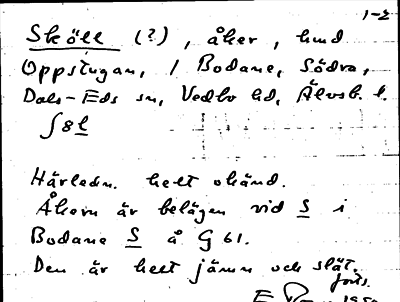 1-2
Sköll (?), åker, hmd
Oppstugan, 1 Bodane, Södra,
Dals-Eds sn, Vedbo hd, Älvsb. l.
ʃ8l
Härledn. helt okänd.
Åkern är belägen vid S i
Bodane S å G 61.
Den är helt jämn och slät.
forts.